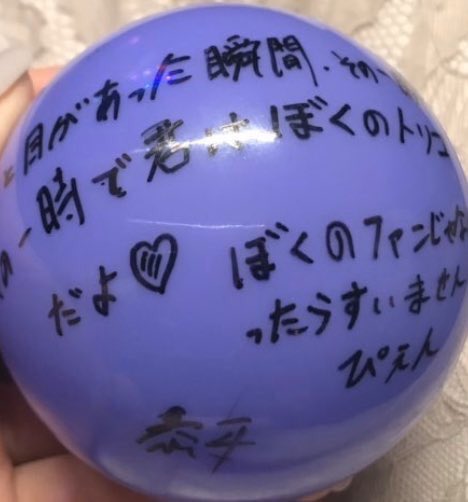 と目があった瞬間、その一
の一時で君はぼくのトリコ
だよ♡
ぼくのファンじゃな
ったらすいません
ぴえん
恭平